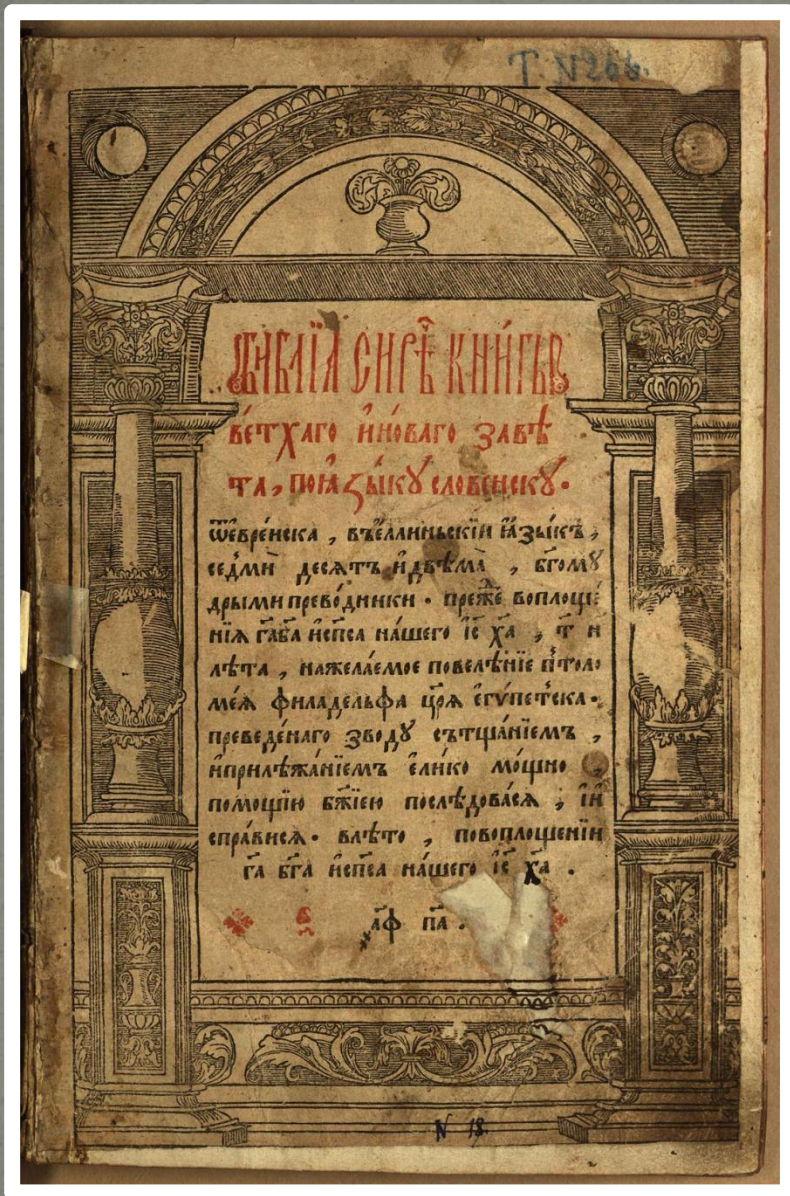 Т. N 266.
Библїа сирѣⷱ҇ кни́гы
ве́тхаго и҆но́ваго завѣ́
та, поꙗ҆зы́кꙋ словенскꙋ.
ѿе҆вре́иска, въе҆́ллиньскїи ꙗ҆зы́къ,
се́дмь десѧ́тъ и҆двѣма̀, бг҃омꙋ
дрыми прево́дники. пре́жⷣе воплоще́
нїѧ гаⷭ҇ба и҆спⷭ҇а на́шего і҆с҃ ха҃, т҃ и
лѣ́та, нажела́емое повелѣ́нїе пто́ло
ме́ѧ филадельфа цр҃ѧ є҆гѵ́петска.
преведе́наго зводꙋ сътща́нїемъ,
и҆прилѣжа́нїемъ є҆ли́ко мо́щно,
помощїю бж҃їею послѣ́довасѧ, і҆и
спра́висѧ. влѣ́то, повоплоще́нїи
га҃ бг҃а и҆спⷭ҇а на́шего і҆с҃ ха҃.
҂аф па҃.
N 18.